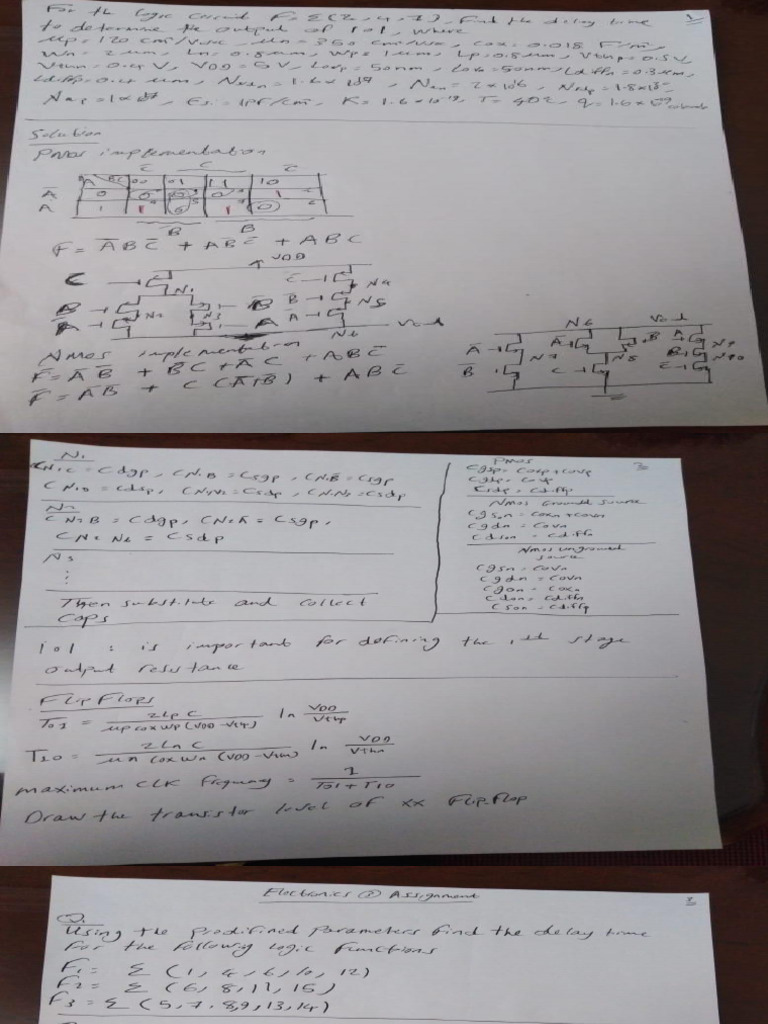 For the logic circuit F = Σ(2, 4, 7), Find the delay time
to determine the output of 101, where
μp = 120 cm²/v.sec, μn = 350 cm²/v.sec, Cox = 0.018 F/m²,
Wn = 2 μm, Ln = 0.8 μm, Wp = 1 μm, Lp = 0.8 μm, Vthp = 0.5 V,
Vthn = 0.4 V, VDD = 5V, Lovp = 50nm, Lovn = 50nm, Ldiffn = 0.3 μm,
Solution
PMOS implementation
C̅ C C̅
A BC 00 01 11 10
A̅ 0 0 0 0 1
A 1 1 0 1 0
B̅ B
F = A̅BC̅ + AB̅C̅ + ABC
VDD
C N1 C̅ N4
B N2 N3 B̅ B̅ N5
A̅ A A̅ N6 Vout
NMOS implementation
F̅ = A̅B̅ + B̅C + A̅C + ABC̅
F̅ = A̅B̅ + C(A̅+B̅) + ABC̅
N6 Vout
A̅ N7 A̅ B̅ A N9
B̅ C N8 B N10
C̅
N1
CN1C = Cdgp, CN1B = Csgp, CN1B̅ = Csgp
N2
CN2B = Cdgp, CN2A̅ = Csgp,
CN2N6 = Csdp
N3
⋮
Then substitute and collect
caps
PMOS
Cgsp = Coxp + Covp
Cgdp = Covp
Csdp = Cdiffp
NMOS Ground source
Cgson = Coxn + Covn
Cgdn = Covn
Cdson = Cdiffn
NMOS unground
source
Cgsn = Covn
Cgdn = Covn
Cgon = Coxn
Cdon = Cdiffn
Cson = Cdiffn
101 : is important for defining the 1st stage
output resistance
Flip Flops
T01 = 2LpC / μpCoxWp(VDD - Vtp) ln VDD/Vthp
T10 = 2LnC / μnCoxWn(VDD - Vthn) ln VDD/Vthn
maximum CLK frequency = 1 / T01 + T10
Draw the transistor level of xx Flip.Flop
Electronics ② Assignment
3
Q1
Using the predifined parameters find the delay time
for the following logic functions
F1 = Σ (1, 4, 6, 10, 12)
F2 = Σ (6, 8, 11, 15)
F3 = Σ (5, 7, 8, 9, 13, 14)